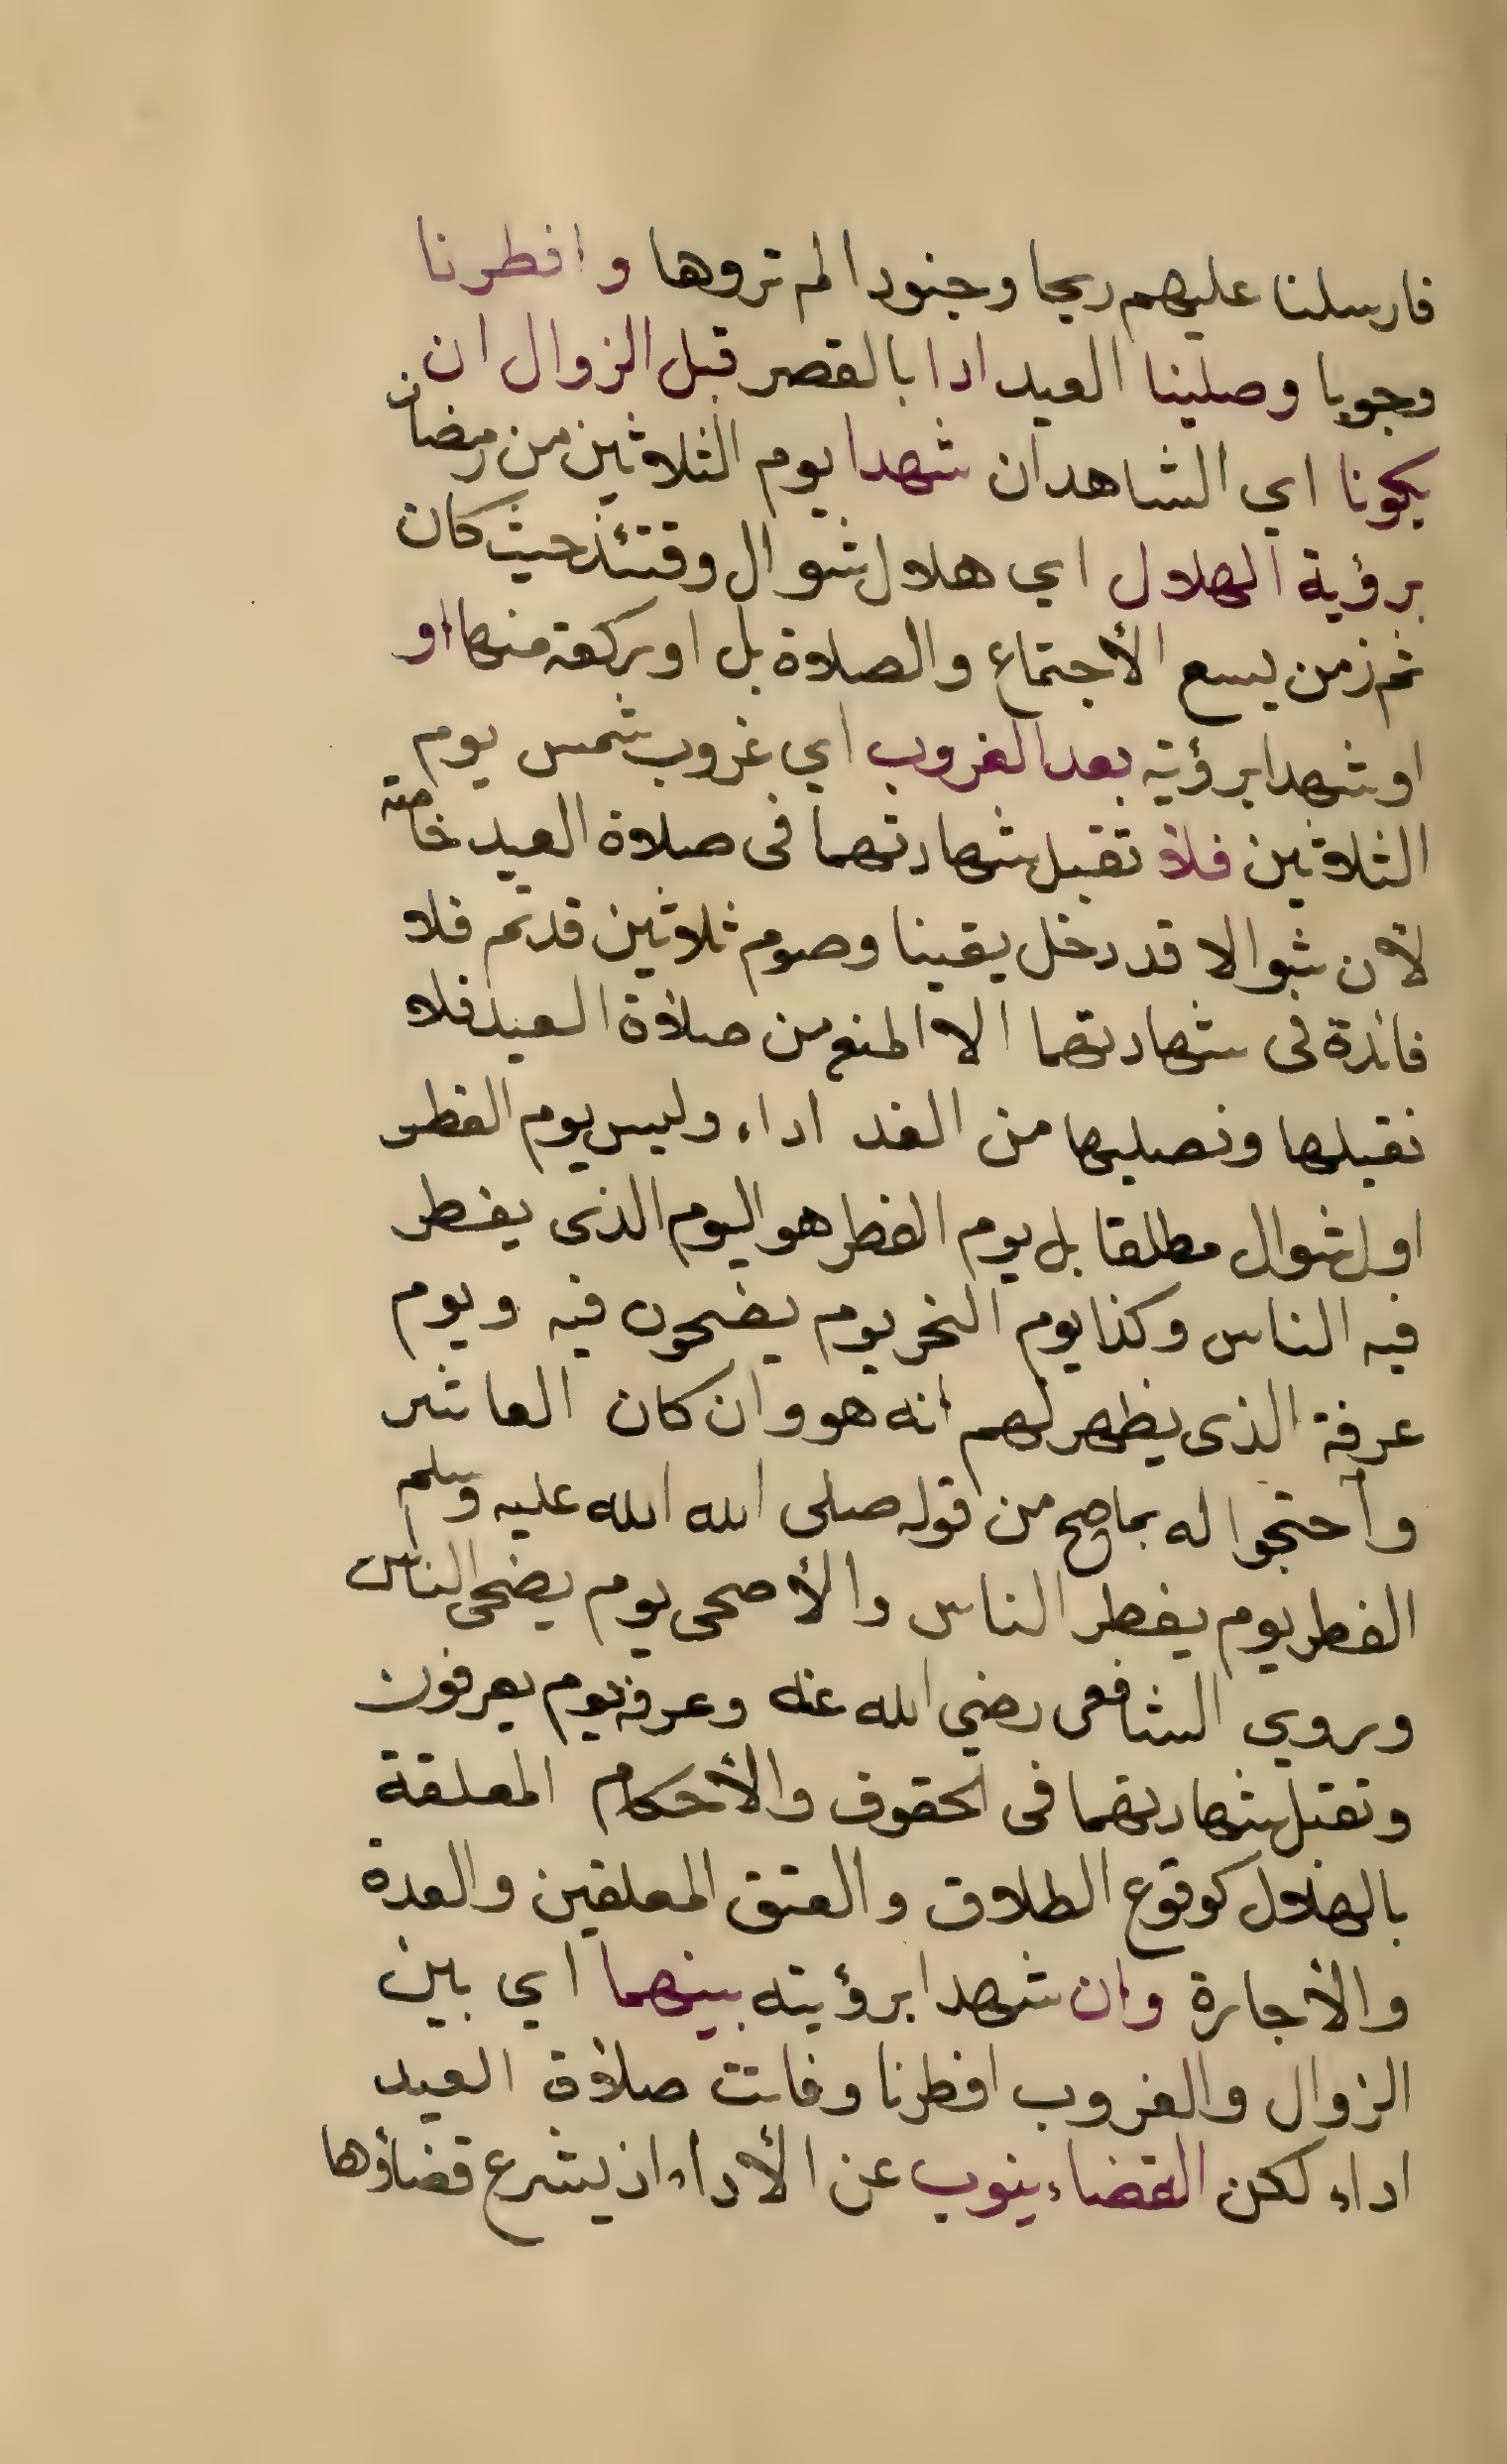 فارسلنا عليهم ريحا وجنودا لم تروها وافطرنا
وجوبا وصلينا العيد ادا بالقصر قبل الزوال ان
يكونا اي الشاهدان شهدا يوم الثلاثين من رمضان
برؤية الهلال اي هلال شوال وقتئذ حيث كان
ثم زمن يسع الأجتماع والصلاة بل او بركعة منها او
او شهدا برؤيته بعد الغروب اي غروب شمس يوم
الثلاثين فلا تقبل شهادتهما فى صلاة العيد خاصة
لأن شوالا قد دخل يقينا وصوم ثلاثين قد تم فلا
فائدة فى شهادتهما الا المنع من صلاة العيد فلا
نقبلها ونصليها من الغد اداء وليس يوم الفطر
اول شوال مطلقا بل يوم الفطر هو اليوم الذى يفطر
فيه الناس وكذا يوم النحر يوم يضحون فيه ويوم
عرفة الذى يظهر لهم انه هو وان كان العاشر
واحتجوا له بما صح من قوله صلى الله الله عليه وسلم
الفطر يوم يفطر الناس والأضحى يوم يضحى الناس
وروي الشافعى رضي الله عنه وعرفة يوم يعرفون
وتقبل شهادتهما فى الحقوق والأحكام المعلقة
بالهلال كوقوع الطلاق والعتق المعلقين والعدة
والأجارة وان شهدا برؤيته بينهما اي بين
الزوال والغروب افطرنا وفاتت صلاة العيد
اداء لكن القضاء ينوب عن الأداء اذ يشرع قضاؤها